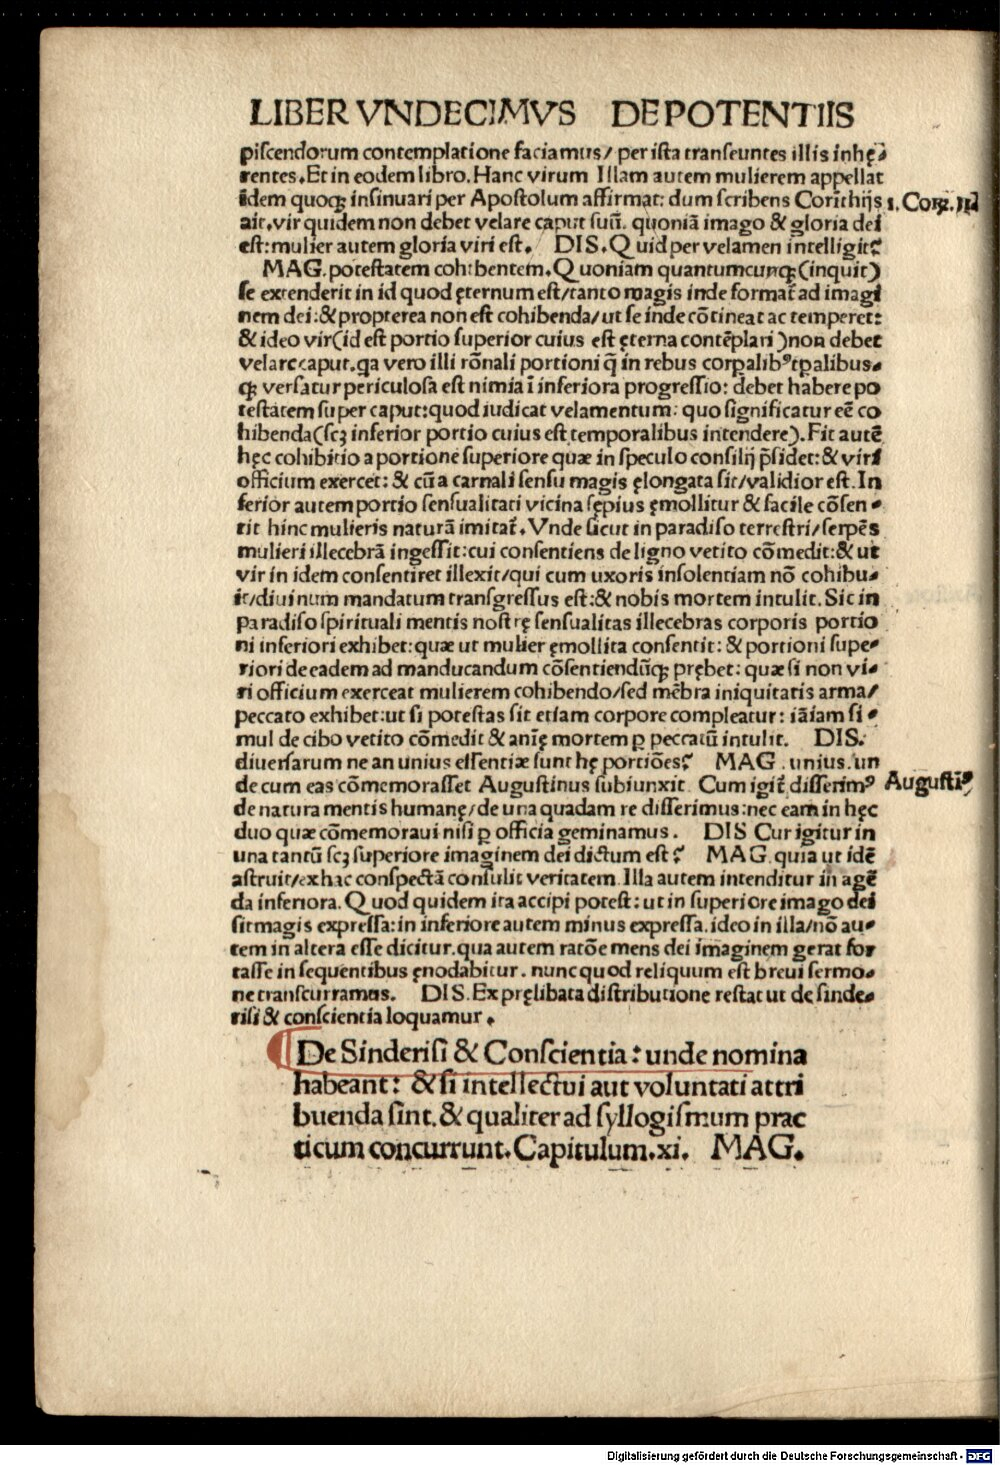 LIBER VNDECIMVS DE POTENTIIS
piscendorum contemplatione faciamus/ per ista transeuntes illis inhę-
rentes. Et in eodem libro. Hanc virum Illam autem mulierem appellat
idem quoqꝫ insinuari per Apostolum affirmat: dum scribens Corīthijs
1. Cor. xi
ait. vir quidem non debet velare caput suū. quoniā imago & gloria dei
est: mulier autem gloria viri est. DIS. Quid per velamen intelligit?
MAG. potestatem cohibentem. Quoniam quantumcunqꝫ (inquit)
se extenderit in id quod ęternum est/ tanto magis inde format᷑ ad imagi
nem dei: & propterea non est cohibenda/ ut se inde cōtineat ac temperet:
& ideo vir (id est portio superior cuius est ęterna contēplari) non debet
velare caput. qa vero illi rōnali portioni q̄ in rebus corꝑalibꝰ tꝑalibus-
qꝫ versatur periculosa est nimia ī inferiora progressio: debet habere po
testatem super caput: quod iudicat velamentum: quo significatur eē co
hibenda (scꝫ inferior portio cuius est temporalibus intendere). Fit autē
hęc cohibitio a portione superiore quæ in speculo consilij p̄sidet: & viri
officium exercet: & cū a carnali sensu magis ęlongata sit/ validior est. In
ferior autem portio sensualitati vicina sępius ęmollitur & facile cōsen-
tit hinc mulieris naturā imitat᷑. Vnde sicut in paradiso terrestri/ serpēs
mulieri illecebrā ingessit: cui consentiens de ligno vetito cōmedit: & ut
vir in idem consentiret illexit/ qui cum uxoris insolentiam nō cohibu-
it/ diuinum mandatum transgressus est: & nobis mortem intulit. Sic in
paradiso spirituali mentis nostrę sensualitas illecebras corporis portio
ni inferiori exhibet: quæ ut mulier ęmollita consentit: & portioni supe-
riori de eadem ad manducandum cōsentiendūqꝫ prębet: quæ si non vi-
ri officium exerceat mulierem cohibendo/ sed mēbra iniquitatis arma/
peccato exhibet: ut si potestas sit etiam corpore compleatur: iāiam si-
mul de cibo vetito cōmedit & anīę mortem ꝑ peccatū intulit. DIS.
diuersarum ne an unius essentiæ sunt hę portiōes? MAG. unius. un
de cum eas cōmemorasset Augustinus subiunxit Cum igit᷑ disserimꝰ
Augustiꝰ
de natura mentis humanę/ de una quadam re disserimus: nec eam in hęc
duo quæ cōmemoraui nisi ꝑ officia geminamus. DIS Cur igitur in
una tantū scꝫ superiore imaginem dei dictum est? MAG. quia ut idē
astruit/ ex hac conspectā consulit veritatem. Illa autem intenditur in agē
da inferiora. Quod quidem ita accipi potest: ut in superiore imago dei
sit magis expressa: in inferiore autem minus expressa. ideo in illa/ nō au-
tem in altera esse dicitur. qua autem ratōe mens dei imaginem gerat for
tasse in sequentibus ęnodabitur. nunc quod reliquum est breui sermo-
ne transcurramus. DIS. Ex pręlibata distributione restat ut de sinde-
risi & conscientia loquamur.
De Sinderisi & Conscientia: unde nomina
habeant: & si intellectui aut voluntati attri
buenda sint. & qualiter ad syllogismum prac
ticum concurrunt. Capitulum. xi. MAG.
Digitalisierung gefördert durch die Deutsche Forschungsgemeinschaft - DFG